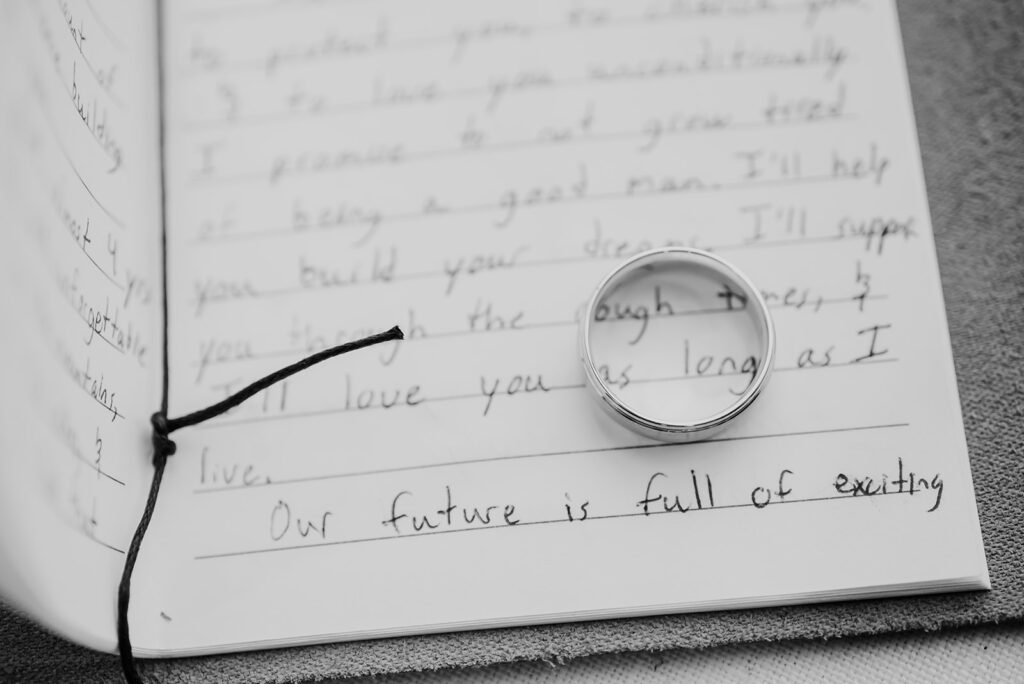 out of
building
most 4 yrs
unforgettable
mountains,
&
to protect you, to cherish you
& to love you unconditionally
I promise to not grow tired
of being a good man. I'll help
you build your dreams. I'll support
you through the ough times, &
I'll love you as long as I
live.
Our future is full of exciting